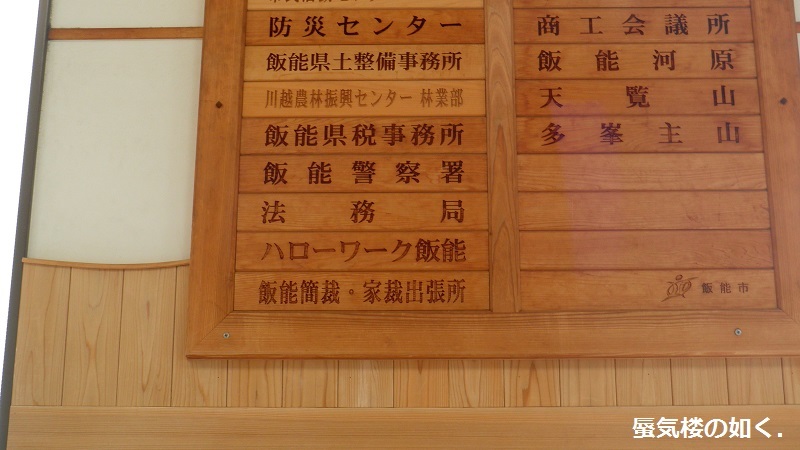 防災センター
飯能県土整備事務所
川越農林振興センター 林業部
飯能県税事務所
飯能警察署
法務局
ハローワーク飯能
飯能簡裁・家裁出張所
商工会議所
飯能河原
天覧山
多峯主山
飯能市
蜃気楼の如く.